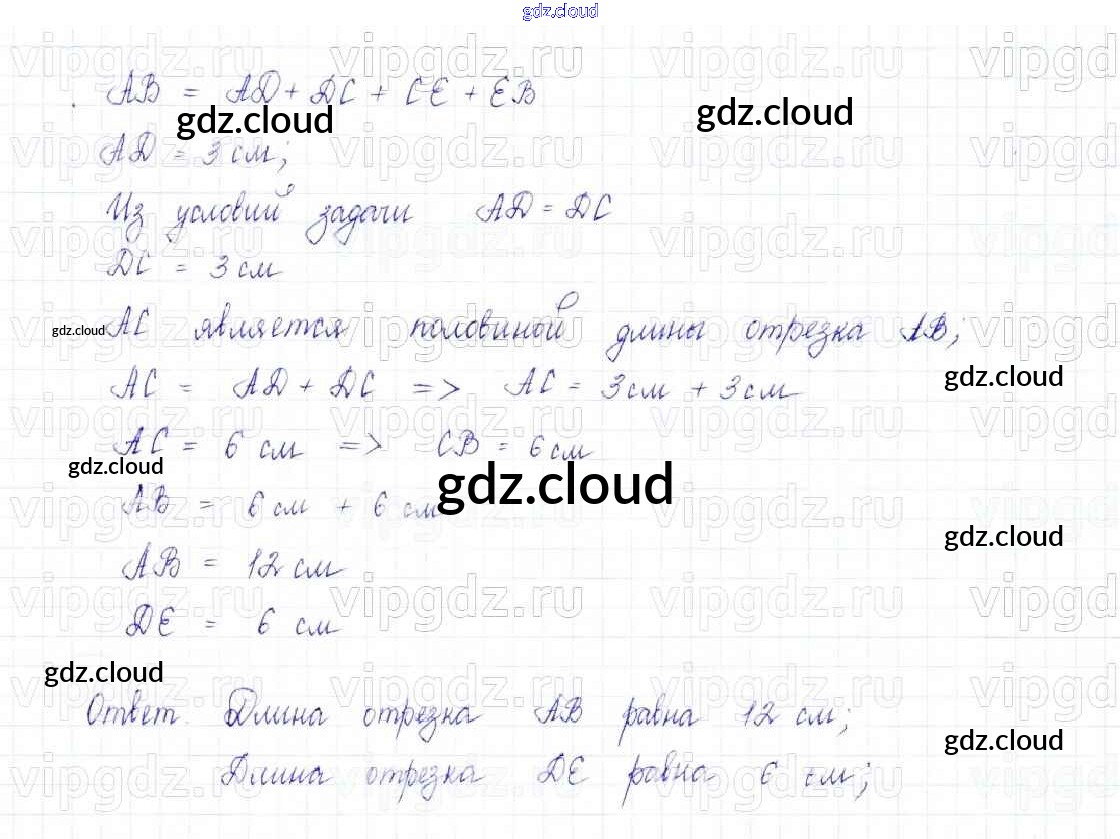 gdz.cloud
AB = AD + DC + CE + EB
gdz.cloud gdz.cloud
AD = 3 см;
Из условий задачи AD = DC
DC = 3 см
gdz.cloud AC является половиной длины отрезка AB;
AC = AD + DC => AC = 3 см + 3 см
gdz.cloud
AC = 6 см => CB = 6 см
gdz.cloud
AB = 6 см + 6 см
gdz.cloud
gdz.cloud
AB = 12 см
DE = 6 см
gdz.cloud
Ответ. Длина отрезка AB равна 12 см;
gdz.cloud
Длина отрезка DE равна 6 см;
vipgdz.ru vipgdz.ru vipgdz.ru vipgdz.ru